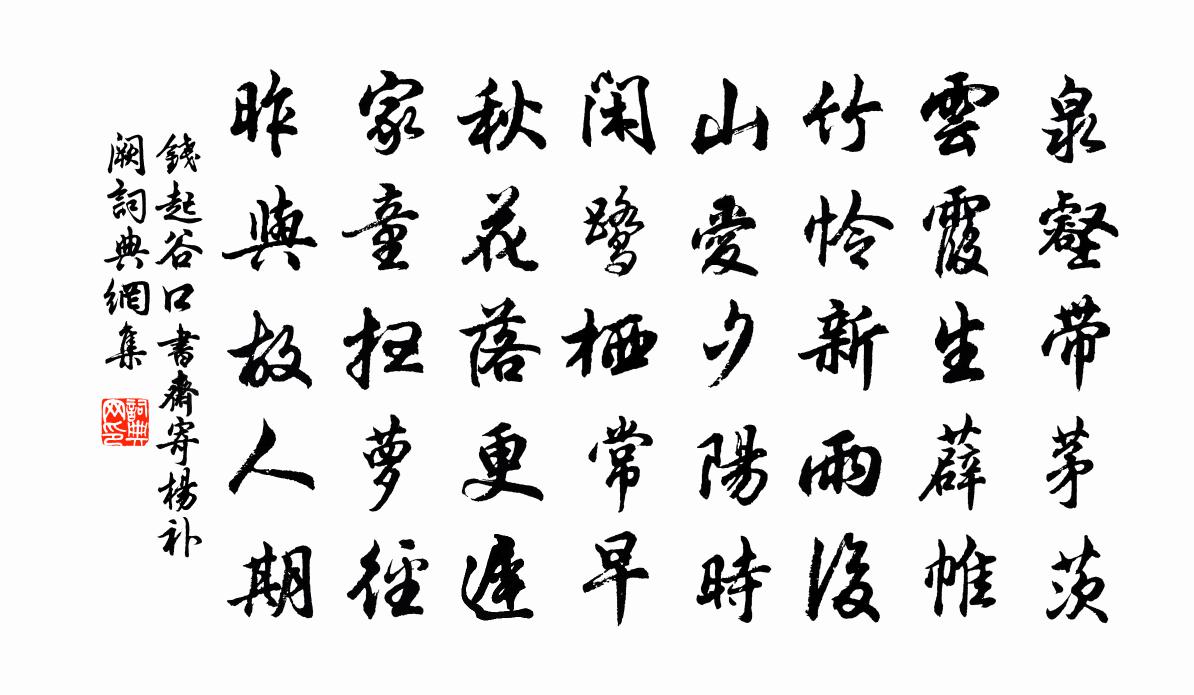 泉壑带茅茨
雲霞生薜帷
竹怜新雨後
山愛夕陽時
閑鷺栖常早
秋花落更遲
家童扫萝徑
昨與故人期
錢起谷口書齋寄楊补
闕詞典網集
詞典
网印